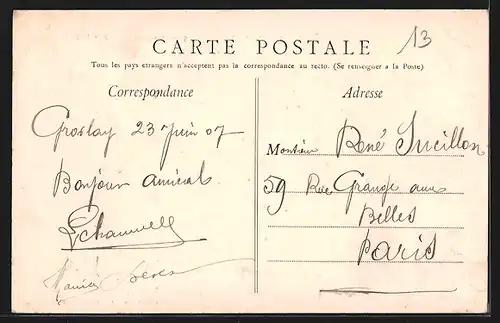 13
CARTE POSTALE
Tous les pays etrangers n'acceptent pas la correspondance au recto. (Se renseigner a la Poste)
Correspondance
Adresse
Groslay 23 Juin 07
Bonjour amical
Monsieur René
59 Rue Grange aux
Belles
Paris